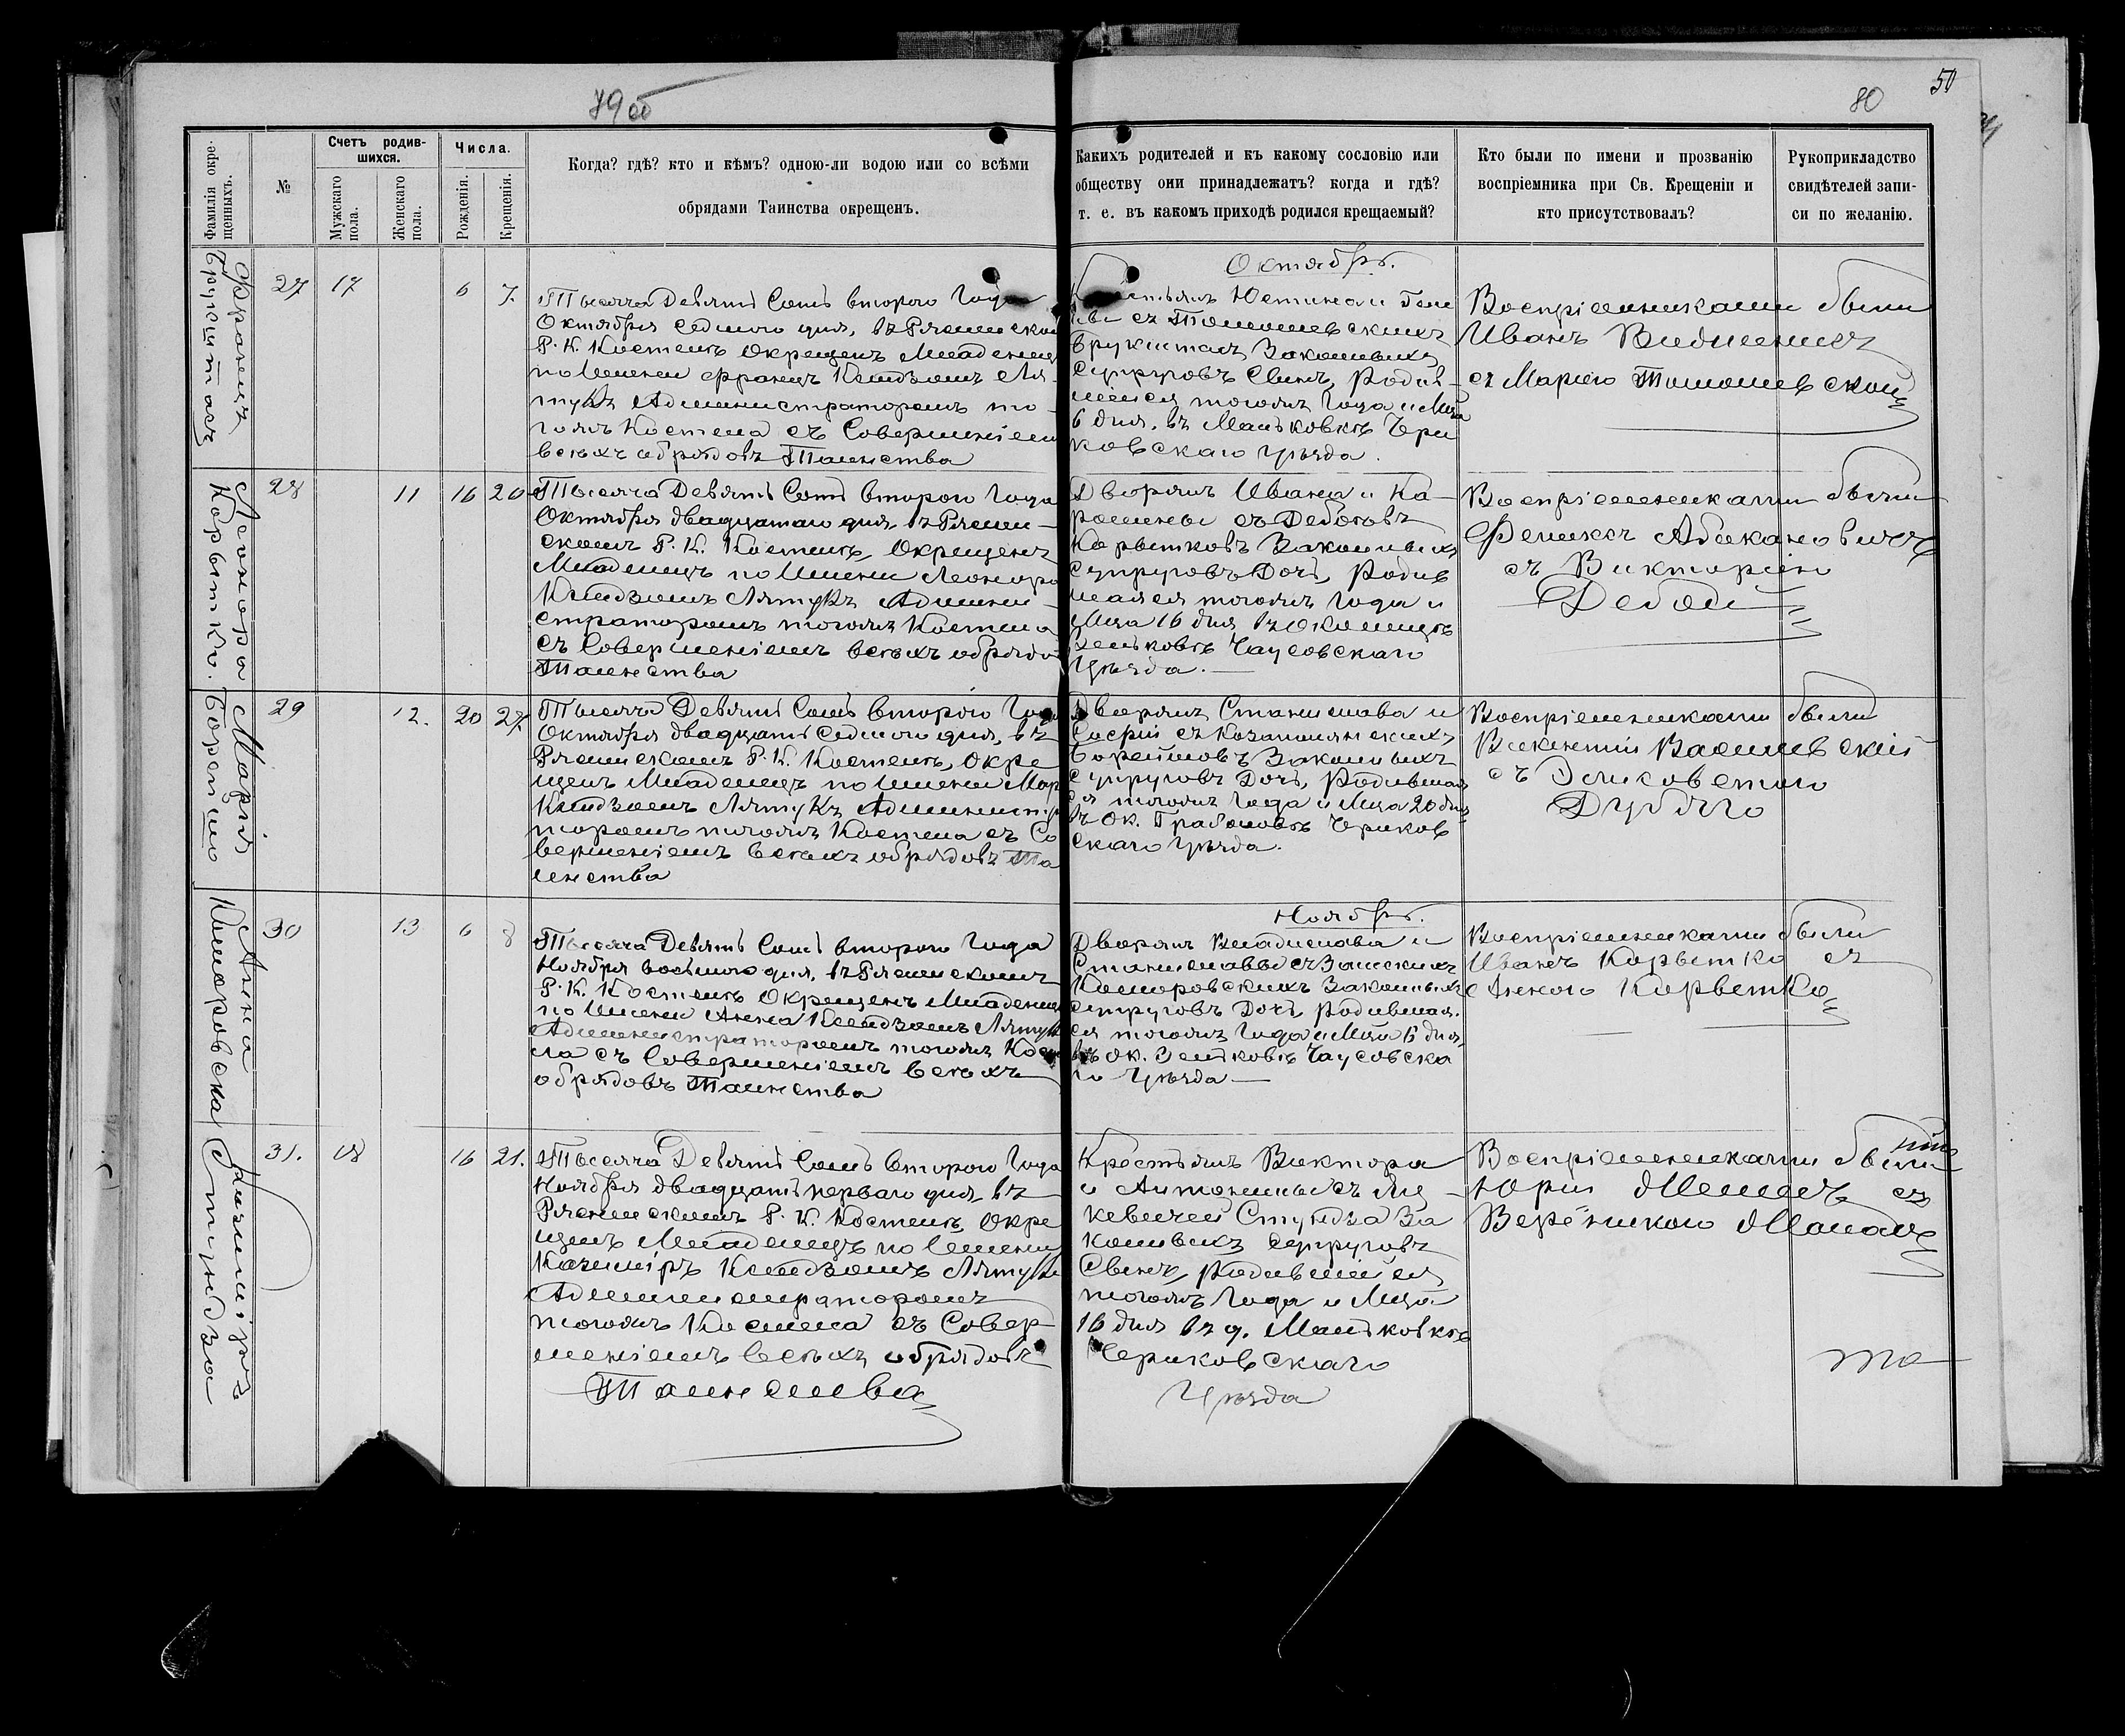 79 об
80
50
Фамилія окре-
щенныхъ.
№
Счетъ родив-
шихся.
Мужскаго
пола.
Женскаго
пола.
Числа.
Рожденія.
Крещенія.
Когда? гдѣ? кто и кѣмъ? одною-ли водою или со всѣми
обрядами Таинства окрещенъ.
Какихъ родителей и къ какому сословію или
обществу они принадлежатъ? когда и гдѣ?
т. е. въ какомъ приходѣ родился крещаемый?
Кто были по имени и прозванію
воспріемника при Св. Крещеніи и
кто присутствовалъ?
Рукоприкладство
свидѣтелей запи-
си по желанію.
Октябрь.
Францъ
27 17 6 7.
Тысяча Девятъ Сотъ второго Года
Октября седмого дня, въ Рясненском
Р. К. Костелѣ Окрещенъ Младенец
по Имени Францъ Ксіодзомъ Ля-
тукъ Администраторомъ то-
гожъ Костела съ Совершеніем
всѣхъ обрядовъ Таинства
Юстина и
съ Томашевскихъ
Законныхъ
Супруговъ Сынъ, Родив-
шійся тогожъ Года и Мца
6 дня. въ Маньковкѣ Чри
ковскаго Уѣзда.
Воспріемниками были
Иванъ
съ Маріею Томошевской
Леонора
Корытко.
28 11 16 20
Тысяча Девятъ Сотъ второго Года
Октября двадцатаго дня, въ Рясни-
скомъ Р. К. Костелѣ, Окрещенъ
Младенецъ по Имени Леонора
Ксіодзомъ Лятукъ Админи-
страторомъ тогожъ Костела
съ Совершеніемъ всѣхъ обрядо
Таинства
Дворянъ Ивана и Ка-
ролины съ Дебоовъ
Корытковъ Законныхъ
супруговъ Дочь, Родив
шаяся тогожъ Года и
Мца 16 дня въ Околицѣ
Зеньковѣ Чаусовскаго
Уѣзда.
Воспріемниками были
Феликсъ Абакановичъ
съ Викторіею
Марія
Борейшо
29 12. 20 27.
Тысяча Девятъ Сотъ второго Года
Октября двадцатъ Седмого дня, въ
Рясненскомъ Р. К. Костелѣ, Окре
щенъ Младенецъ по Имени Мар
Ксіодзомъ Лятукъ Администра
торомъ тогожъ Костела съ Со
вершеніемъ всѣхъ обрядовъ Та
инства
Дворянъ Станислава и
Борейшовъ Законныхъ
супруговъ Дочь, Родившая
ся тогожъ Года и Мца 20 дня
въ Ок. Чриков
скаго Уѣзда.
Воспріемниками были
Викентій Василевскій
съ Елисоветою
Анна
Коморовска
30 13 6 8
Ноябрь.
Тысяча Девятъ Сотъ второго Года
Ноября восьмого дня, въ Рясненскомъ
Р. К. Костелѣ Окрещенъ Младенец
по Имени Анна Ксіодзомъ Лятук
Администраторомъ тогожъ Кост
ла съ Совершеніемъ всѣхъ
обрядовъ Таинства
Дворянъ Владислава и
Станиславы съ
Коморовскихъ Законныхъ
супруговъ Дочь, Родившая
ся тогожъ Года и Мца 6 дня,
въ ок. Зеньковѣ Чаусовска
го Уѣзда
Воспріемниками были
Иванъ Корытко съ
Анною Корытко
Казиміръ
Стундза
31. 18 16 21.
Тысяча Девятъ Сотъ второго Года
Ноября двадцатъ перваго дня, въ
Рясненскомъ Р. К. Костелѣ, Окре
щенъ Младенецъ по Имени
Казиміръ Ксіодзомъ Лятукъ
Администраторомъ
тогожъ Костела съ Совер-
шеніемъ всѣхъ обрядовъ
Таинства
Крестьянъ Виктора
и Антонины съ Яц-
кевичей Стундза За
конныхъ Супруговъ
Сынъ, Родившійся
тогожъ Года и Мца
16 дня въ д. Маньковкѣ
Чериковскаго
Уѣзда
Воспріемниками были
Юрій съ
та